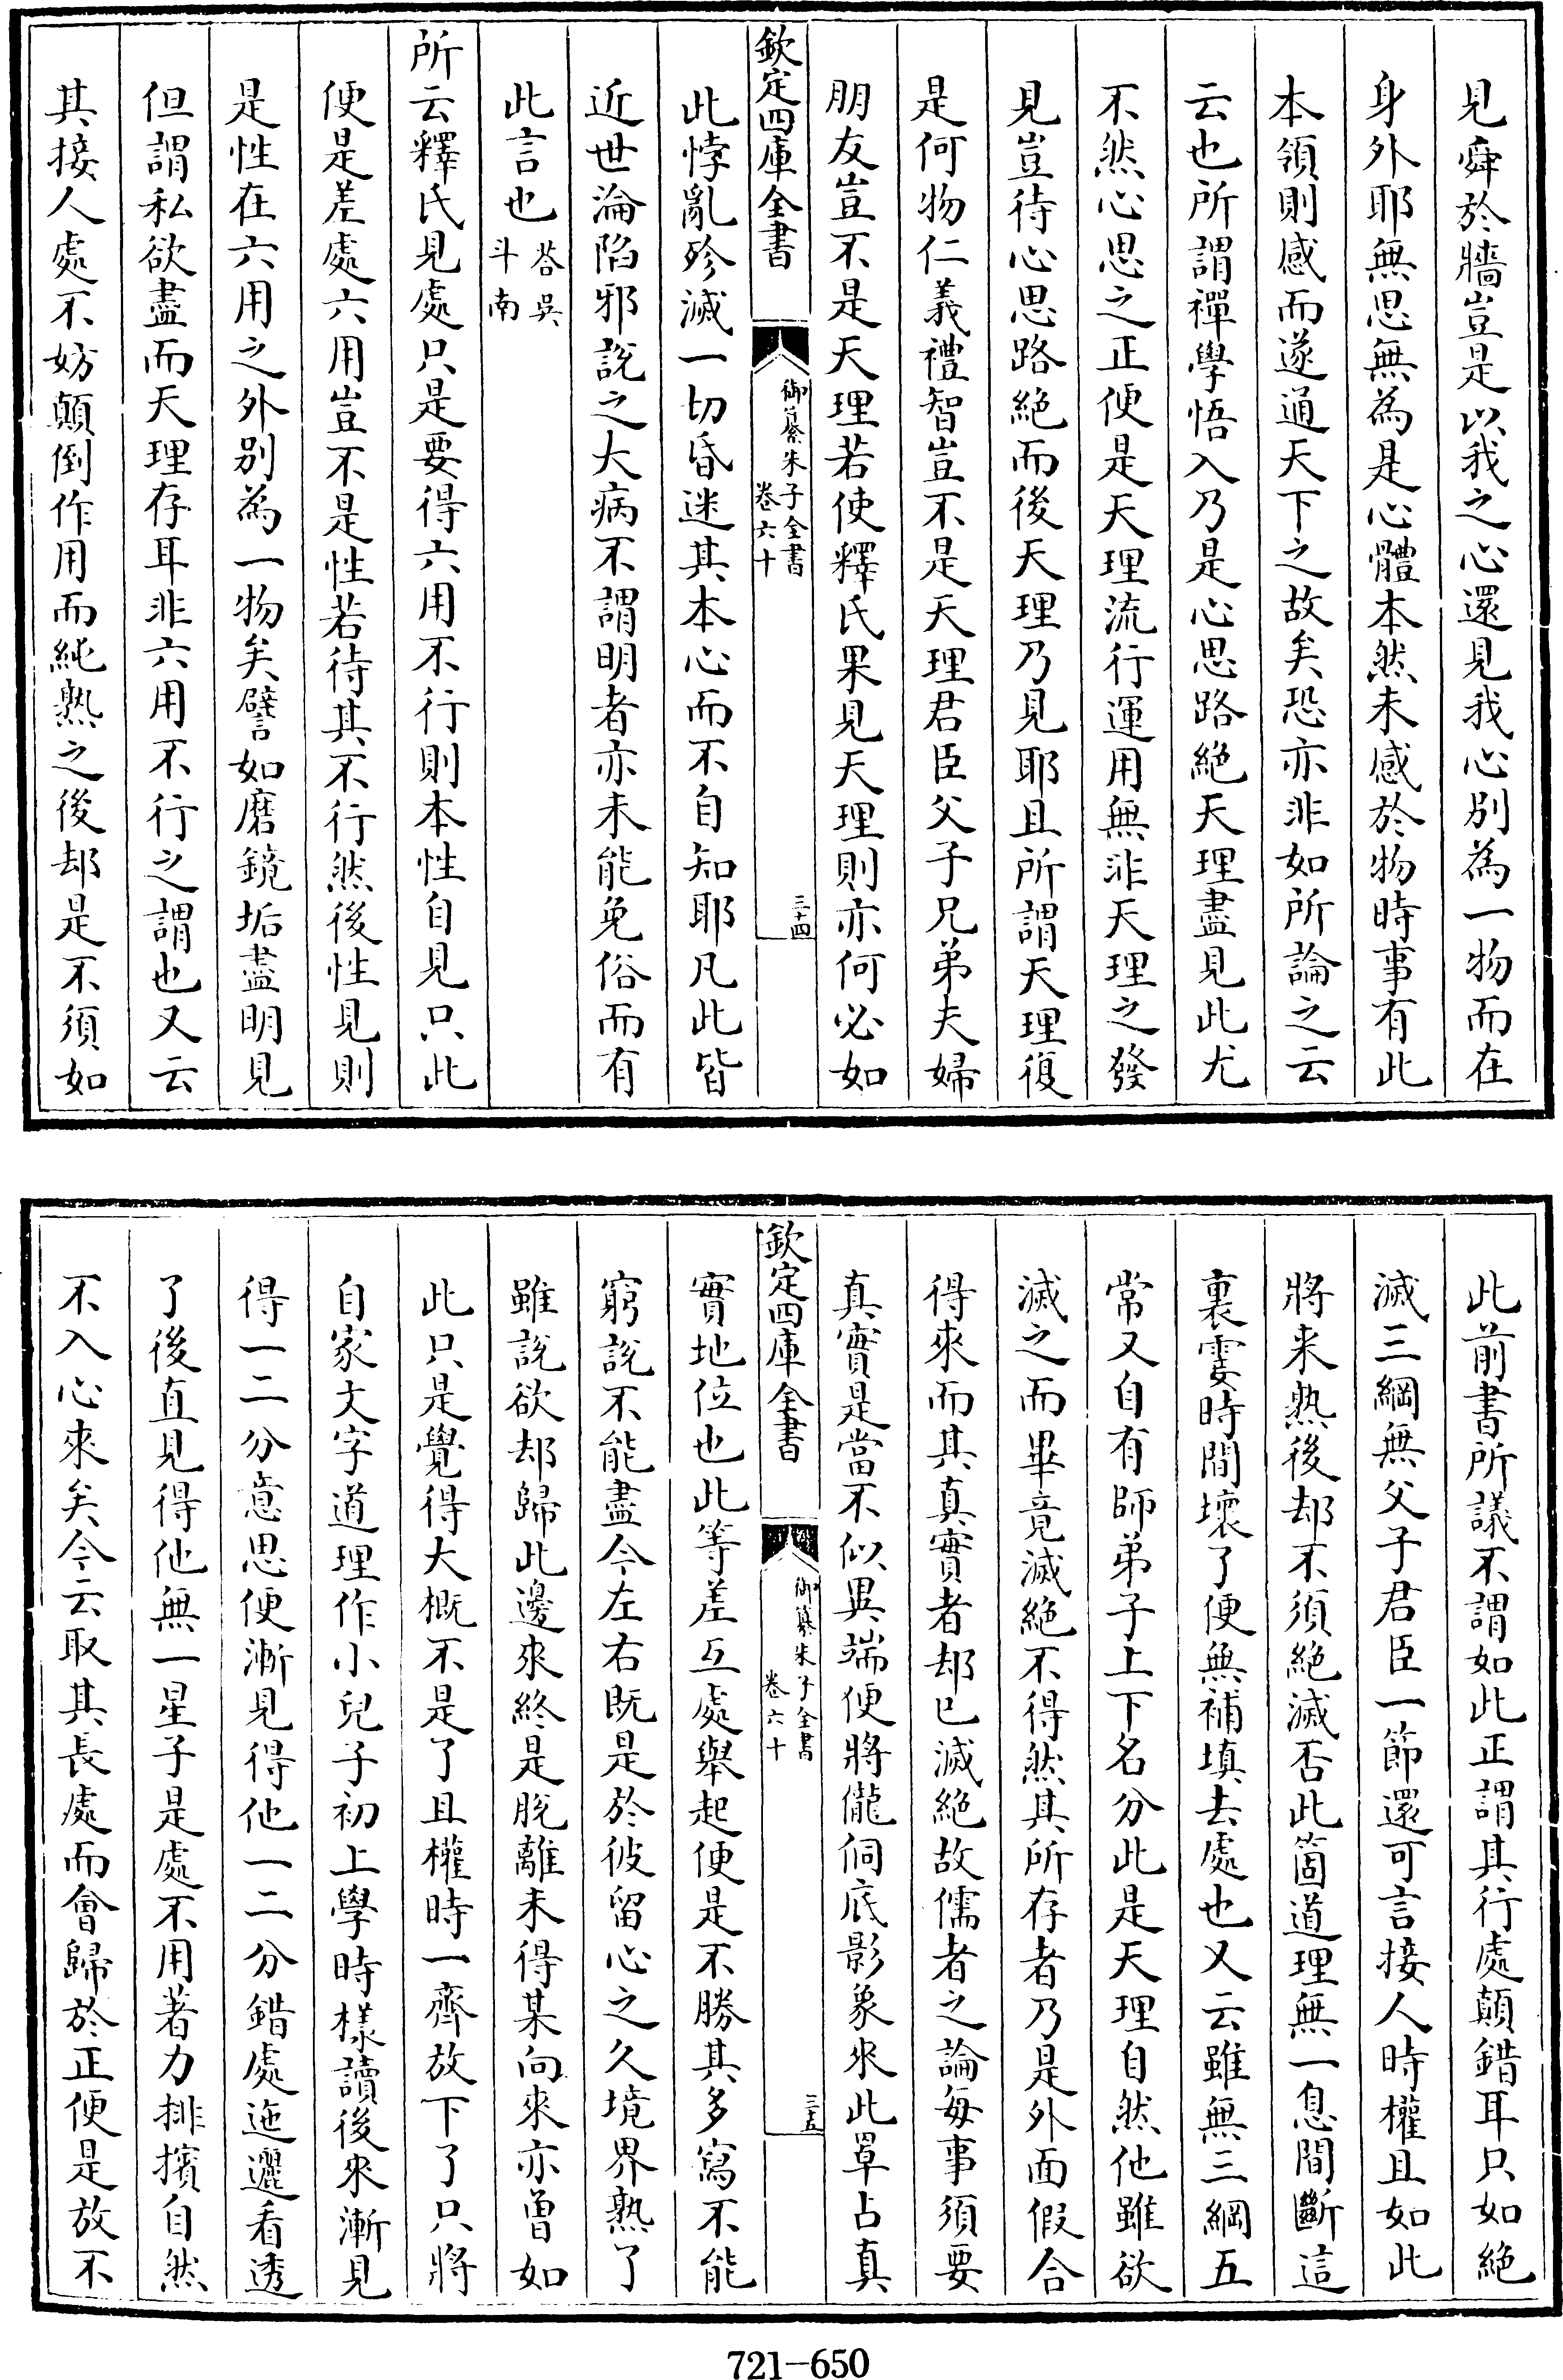 見舜於牆豈是以我之心還見我心别為一物而在
身外耶無思無為是心體本然未感於物時事有此
本領則感而遂通天下之故矣恐亦非如所論之云
云也所謂禪學悟入乃是心思路絶天理盡見此尤
不然心思之正便是天理流行運用無非天理之發
見豈待心思路絶而後天理乃見耶且所謂天理復
是何物仁義禮智豈不是天理君臣父子兄弟夫婦
朋友豈不是天理若使釋氏果見天理則亦何必如
欽定四庫全書
御纂朱子全書
卷六十
三十四
此悖亂殄滅一切昏迷其本心而不自知耶凡此皆
近世淪陷邪說之大病不謂明者亦未能免俗而有
此言也答吳
斗南
所云釋氏見處只是要得六用不行則本性自見只此
便是差處六用豈不是性若待其不行然後性見則
是性在六用之外别為一物矣譬如磨鏡垢盡明見
但謂私欲盡而天理存耳非六用不行之謂也又云
其接人處不妨顛倒作用而純熟之後却是不須如
此前書所議不謂如此正謂其行處顛錯耳只如絶
滅三綱無父子君臣一節還可言接人時權且如此
將来熟後却不須絶滅否此箇道理無一息間斷這
裏霎時間壞了便無補填去處也又云雖無三綱五
常又自有師弟子上下名分此是天理自然他雖欲
滅之而畢竟滅絶不得然其所存者乃是外面假合
得來而其真實者却已滅絶故儒者之論每事須要
真實是當不似異端便將儱侗底影象來此罩占真
欽定四庫全書
御纂朱子全書
卷六十
三五
實地位也此等差互處舉起便是不勝其多寫不能
窮說不能盡今左右既是於彼留心之久境界熟了
雖說欲却歸此邊來終是脫離未得某向來亦曽如
此只是覺得大概不是了且權時一齊放下了只將
自家文字道理作小兒子初上學時樣讀後來漸見
得一二分意思便漸見得他一二分錯處迤邐看透
了後直見得他無一星子是處不用著力排擯自然
不入心來矣今云取其長處而會歸於正便是放不
721-650